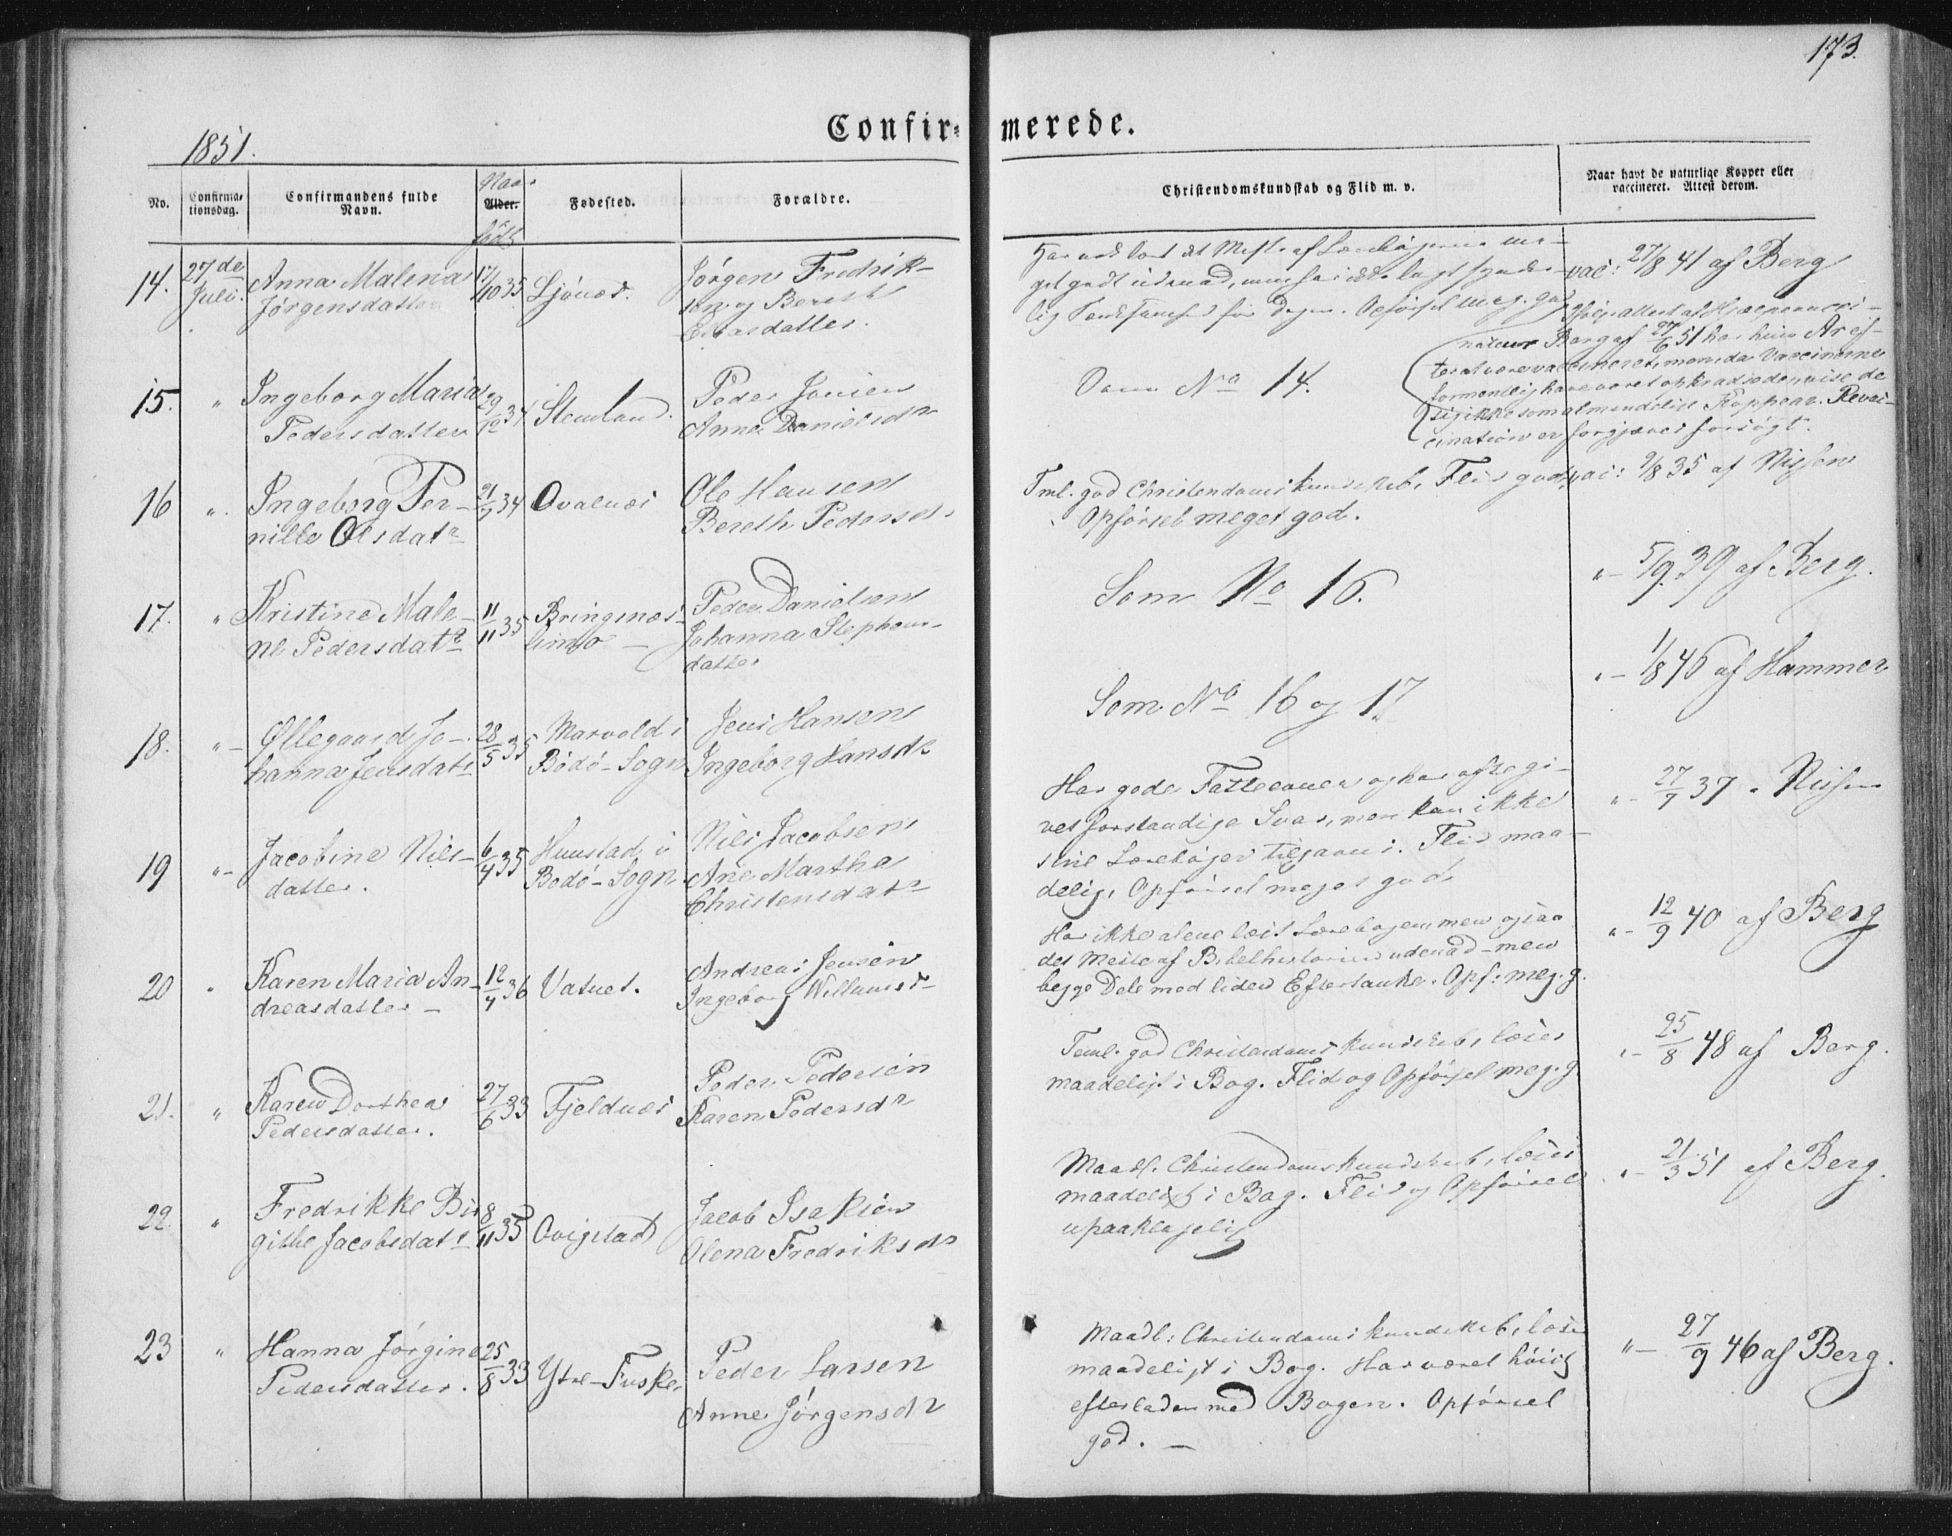 173.
Confir= merede.
1851.
No.
Confirma-
tionsdag.
Confirmandens fulde
Navn.
Naar
Alder.
født
Fødested.
Forældre.
Christendomskundskab og Flid m. v.
Naar havt de naturlige Kopper eller
vaccineret. Attest derom.
14.
27de
Juli.
Anna Malena
Jørgensdatter
17/10 35
Ljønes.
Jørgen Fredrik-
sen og Bereth
datter.
Har det Meste af Lærebogen me-
get godt udenad, men har ikke lagt
lig for Dagen. Opførsel meg. god
vac: 27/8 41 af Berg
15.
"
Ingeborg Maria
Pedersdatter
29/12 34
Stemland.
Peder Jensen
Anna Danielsdr
Som No 14.
ifølge attest af
Berg af 27/6 51 har hun
vaccineret, men da Vaccinerne
formentlig have været opkradsede, vise de
sig ikke som almindelige Koppear. Revac-
cination er forgjæves forsøgt.
16
".
Ingeborg Per-
nille Olsdatr
21/9 34
Ovalnes
Ole Hansen
Bereth Pedersdr
Tml. god Christendomskundskab, Flid god,
Opførsel meget god.
vac: 9/8 35 af Nissen
17.
"
Kristine Male-
ne Pedersdatr
11/11 35
Bringsnes-
limo -
Peder Danielsen
Johanna Stephens-
datter
Som No 16.
"- 5/9 39 af Berg.
18.
"-
Øllegaard Jo-
hanna Jensdatr
28/5 35
Marvold i
Bodø-Sogn
Jens Hansen
Ingeborg Hansdr
Som No 16 og 17
"- 1/8 46 af Hammer
19
"-
Jacobine Nils-
datter.
6/4 35
Hunstad i
Bodø-Sogn
Nils Jacobsen
Ane Martha
Christensdatr
Har gode Fatteevner og har ofte gi-
vet forstandige Svar, men kan ikke
sine Lærebøger tilgavns. Flid maa-
delig, Opførsel meget god
"- 27/7 37 " Nissen
20
"
Karen Maria An-
dreasdatter -
12/7 36
Vatnet.
Andreas Jensen
Ingeborg Willumsdr
Har ikke alene læst Lærebogen, men ogsaa
det Meste af Bibelhistorien udenad - men
begge Dele med liden Eftertanke. Opf: meg. g.
"- 12/9 40 af Berg
21.
"
Karen Dorthea
Pedersdatter.
27/6 33
Fjeldnes
Peder Pedersen
Karen Pedersdr
Teml. god Christendomskundskab, læser
maadeligt i Bog. Flid og Opførsel meg. g
"- 25/8 48 af Berg.
22.
"
Fredrikke Bir
githe Jacobsdatr
8/11 35
Qvigstad
Jacob Isaksen
Olena Fredriksdr
Maadl. Christendomskundskab, læser
maadeligt i Bog. Flid og Opførsel
upaaklagelig
"- 21/3 51 af Berg.
23
"
Hanna Jørgine
Pedersdatter.
25/8 33
Ytre-Fuske
Peder Larsen
Anne Jørgensdr
Maadl: Christendomskundskab, læser
maadeligt i Bog. Har været høist
efterladen med Bogen. Opførsel
god. -
"- 27/9 46 af Berg.